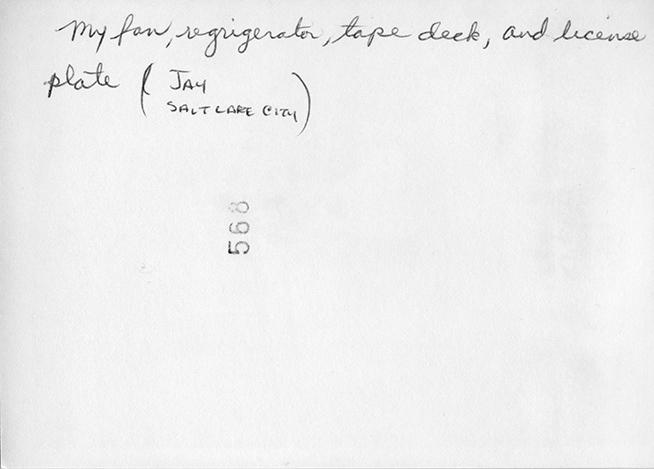 My fan, regrigerator, tape deck, and license
plate (JAY
SALT LAKE CITY)
568